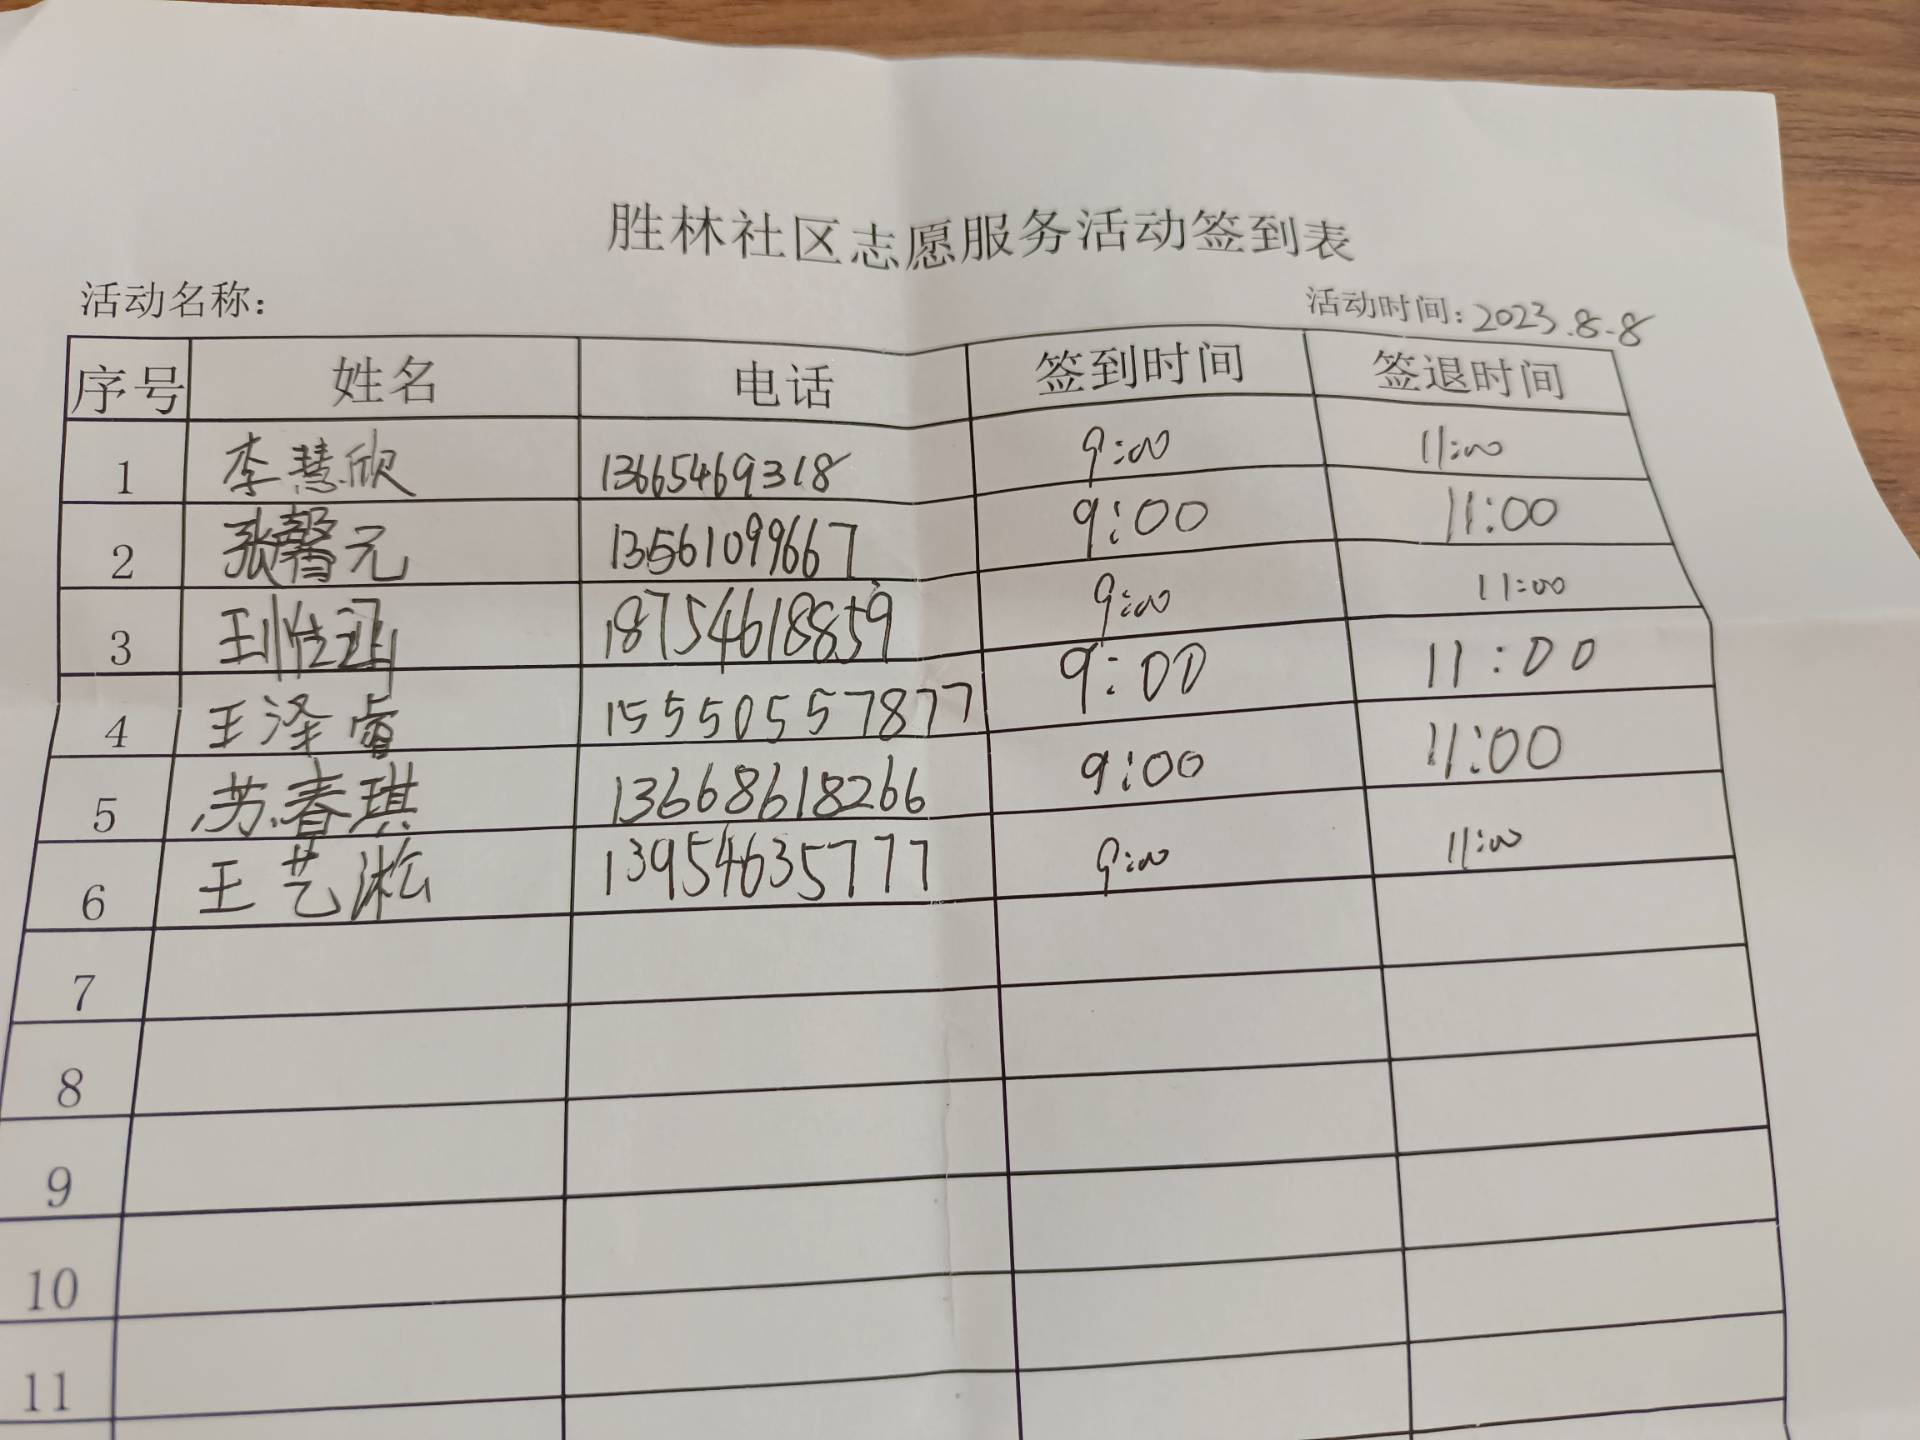 胜林社区志愿服务活动签到表
活动名称： 活动时间：2023.8-8
序号 姓名 电话 签到时间 签退时间
1 李慧欣 13665469318 9:00 11:00
2 张馨元 13561099667 9:00 11:00
3 18754618859 9:00 11:00
4 王泽睿 15550557877 9:00 11:00
5 苏春琪 13668618266 9:00 11:00
6 王艺淞 13954635777 9:00 11:00
7
8
9
10
11